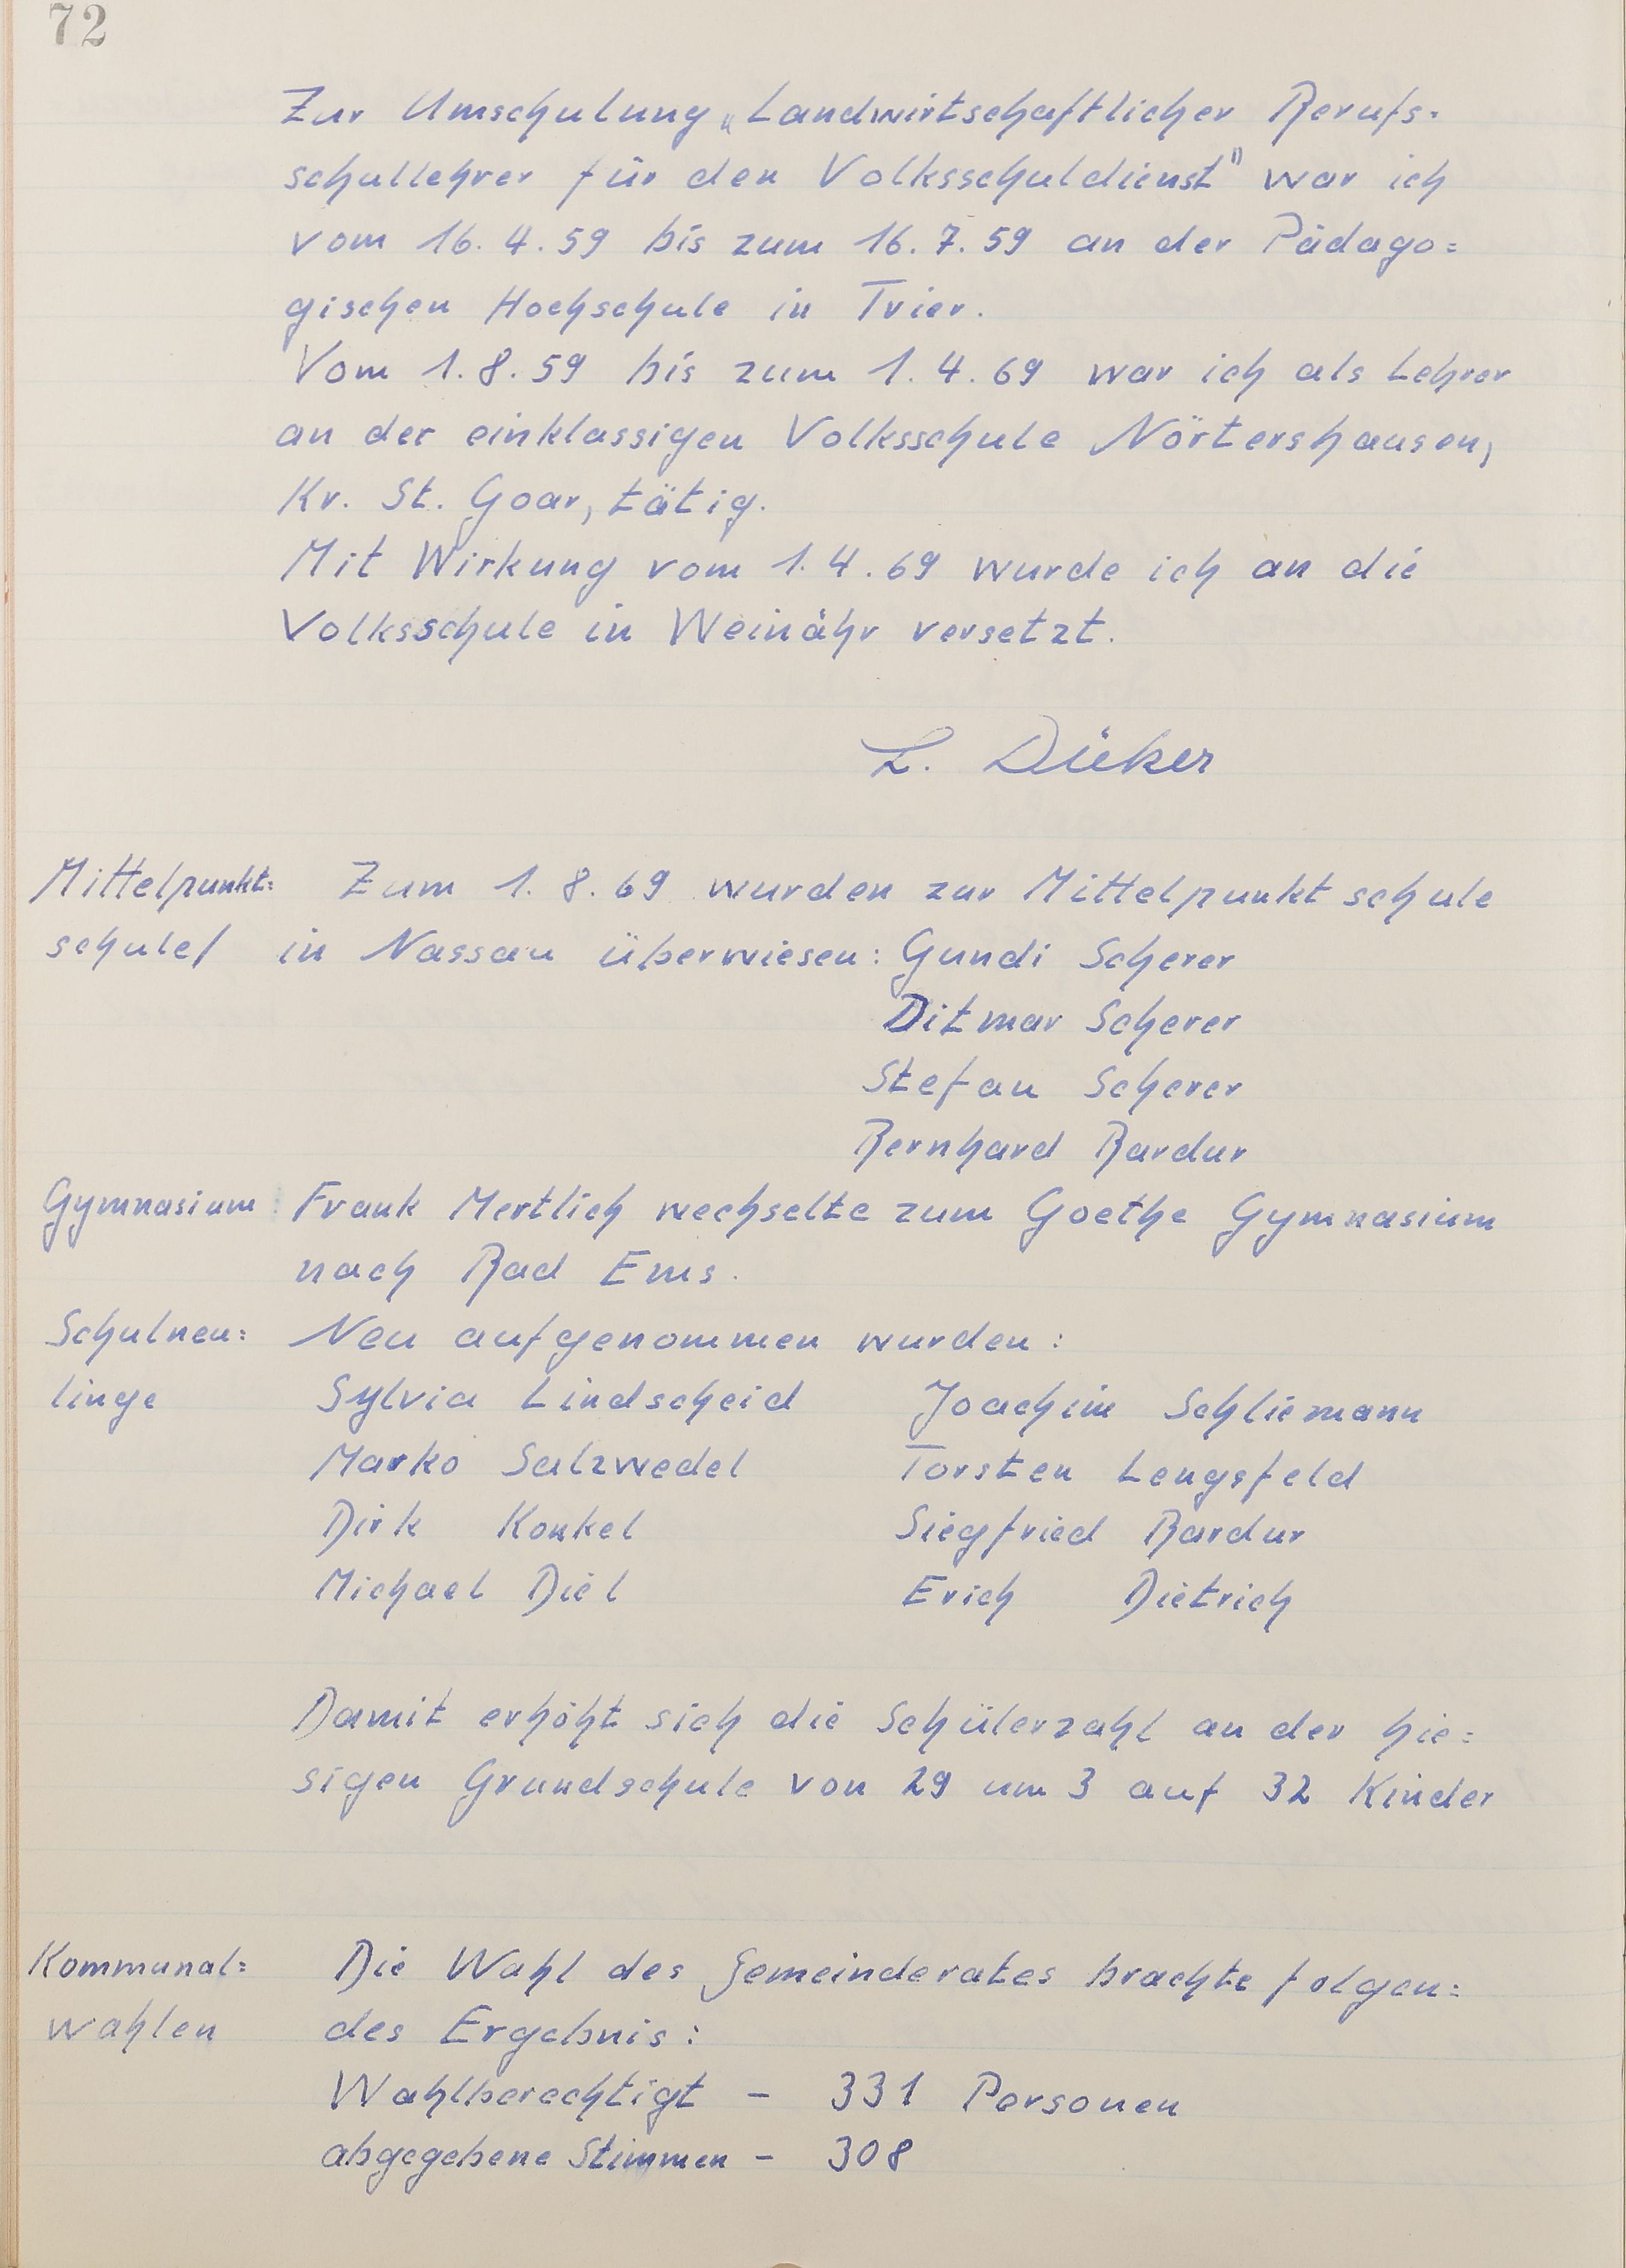 72
Zur Umschulung „Landwirtschaftlicher Berufs-
schullehrer für den Volksschuldienst" war ich
vom 16.4.59 bis zum 16.7.59 an der Pädago=
gischen Hochschule in Trier.
Vom 1.8.59 bis zum 1.4.69 war ich als Lehrer
an der einklassigen Volksschule Nörtershausen,
Kr. St. Goar, tätig.
Mit Wirkung vom 1.4.69 wurde ich an die
Volksschule in Weinähr versetzt.
L. Düker
Mittelpunkt= Zum 1.8.69 wurden zur Mittelpunktschule
schule/ in Nassau überwiesen: Gundi Scherer
Ditmar Scherer
Stefan Scherer
Bernhard Bardur
Gymnasium Frank Mertlich wechselte zum Goethe Gymnasium
nach Bad Ems.
Schulneu= Neu aufgenommen wurden:
linge Sylvia Lindscheid Joachim Schliemann
Marko Salzwedel Torsten Lengsfeld
Dirk Konkel Siegfried Bardur
Michael Diel Erich Dietrich
Damit erhöht sich die Schülerzahl an der hie=
sigen Grundschule von 29 um 3 auf 32 Kinder
Kommunal= Die Wahl des Gemeinderates brachte folgen=
wahlen des Ergebnis:
Wahlberechtigt - 331 Personen
abgegebene Stimmen - 308